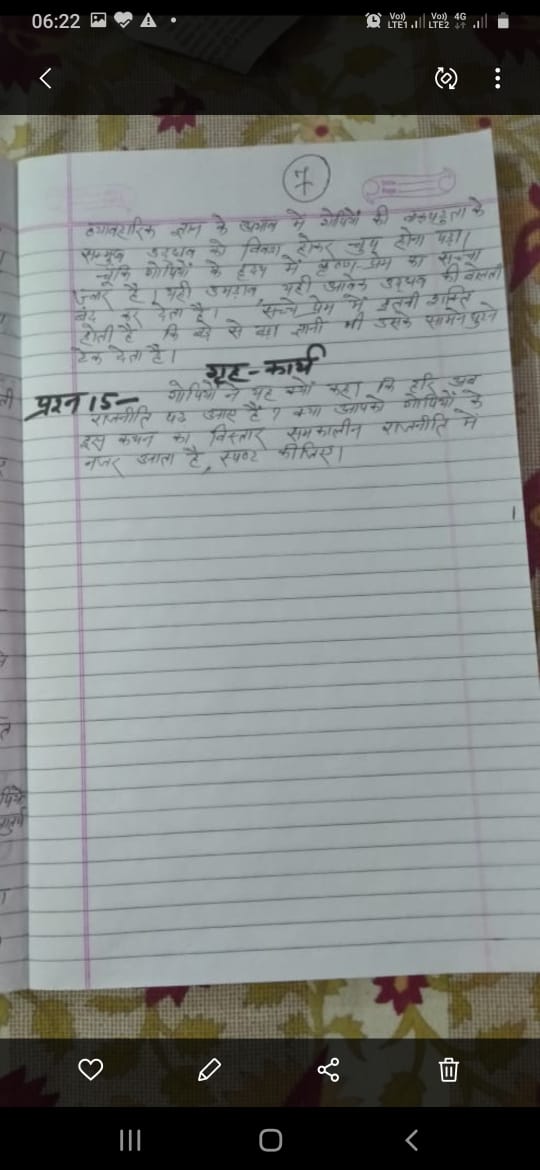 06:22
Vo)) LTE1 Vo)) 4G LTE2
7
व्यावहारिक ज्ञान के अभाव में गोपियों की वाकपटुता के
सम्मुख उद्धव को विवश होकर चुप होना पड़ा।
चूंकि गोपियों के हृदय में कृष्ण-प्रेम का सच्चा
ज्वार है। यही उमड़ाव यही आवेग उद्धव की बोलती
बंद कर देता है। सच्चे प्रेम में इतनी शक्ति
होती है कि बड़े से बड़ा ज्ञानी भी उसके सामने घुटने
टेक देता है।
गृह-कार्य
प्रश्न 15- गोपियों ने यह क्यों कहा कि हरि अब
राजनीति पढ़ आए हैं? क्या आपको गोपियों के
इस कथन का विस्तार समकालीन राजनीति में
नजर आता है, स्पष्ट कीजिए।